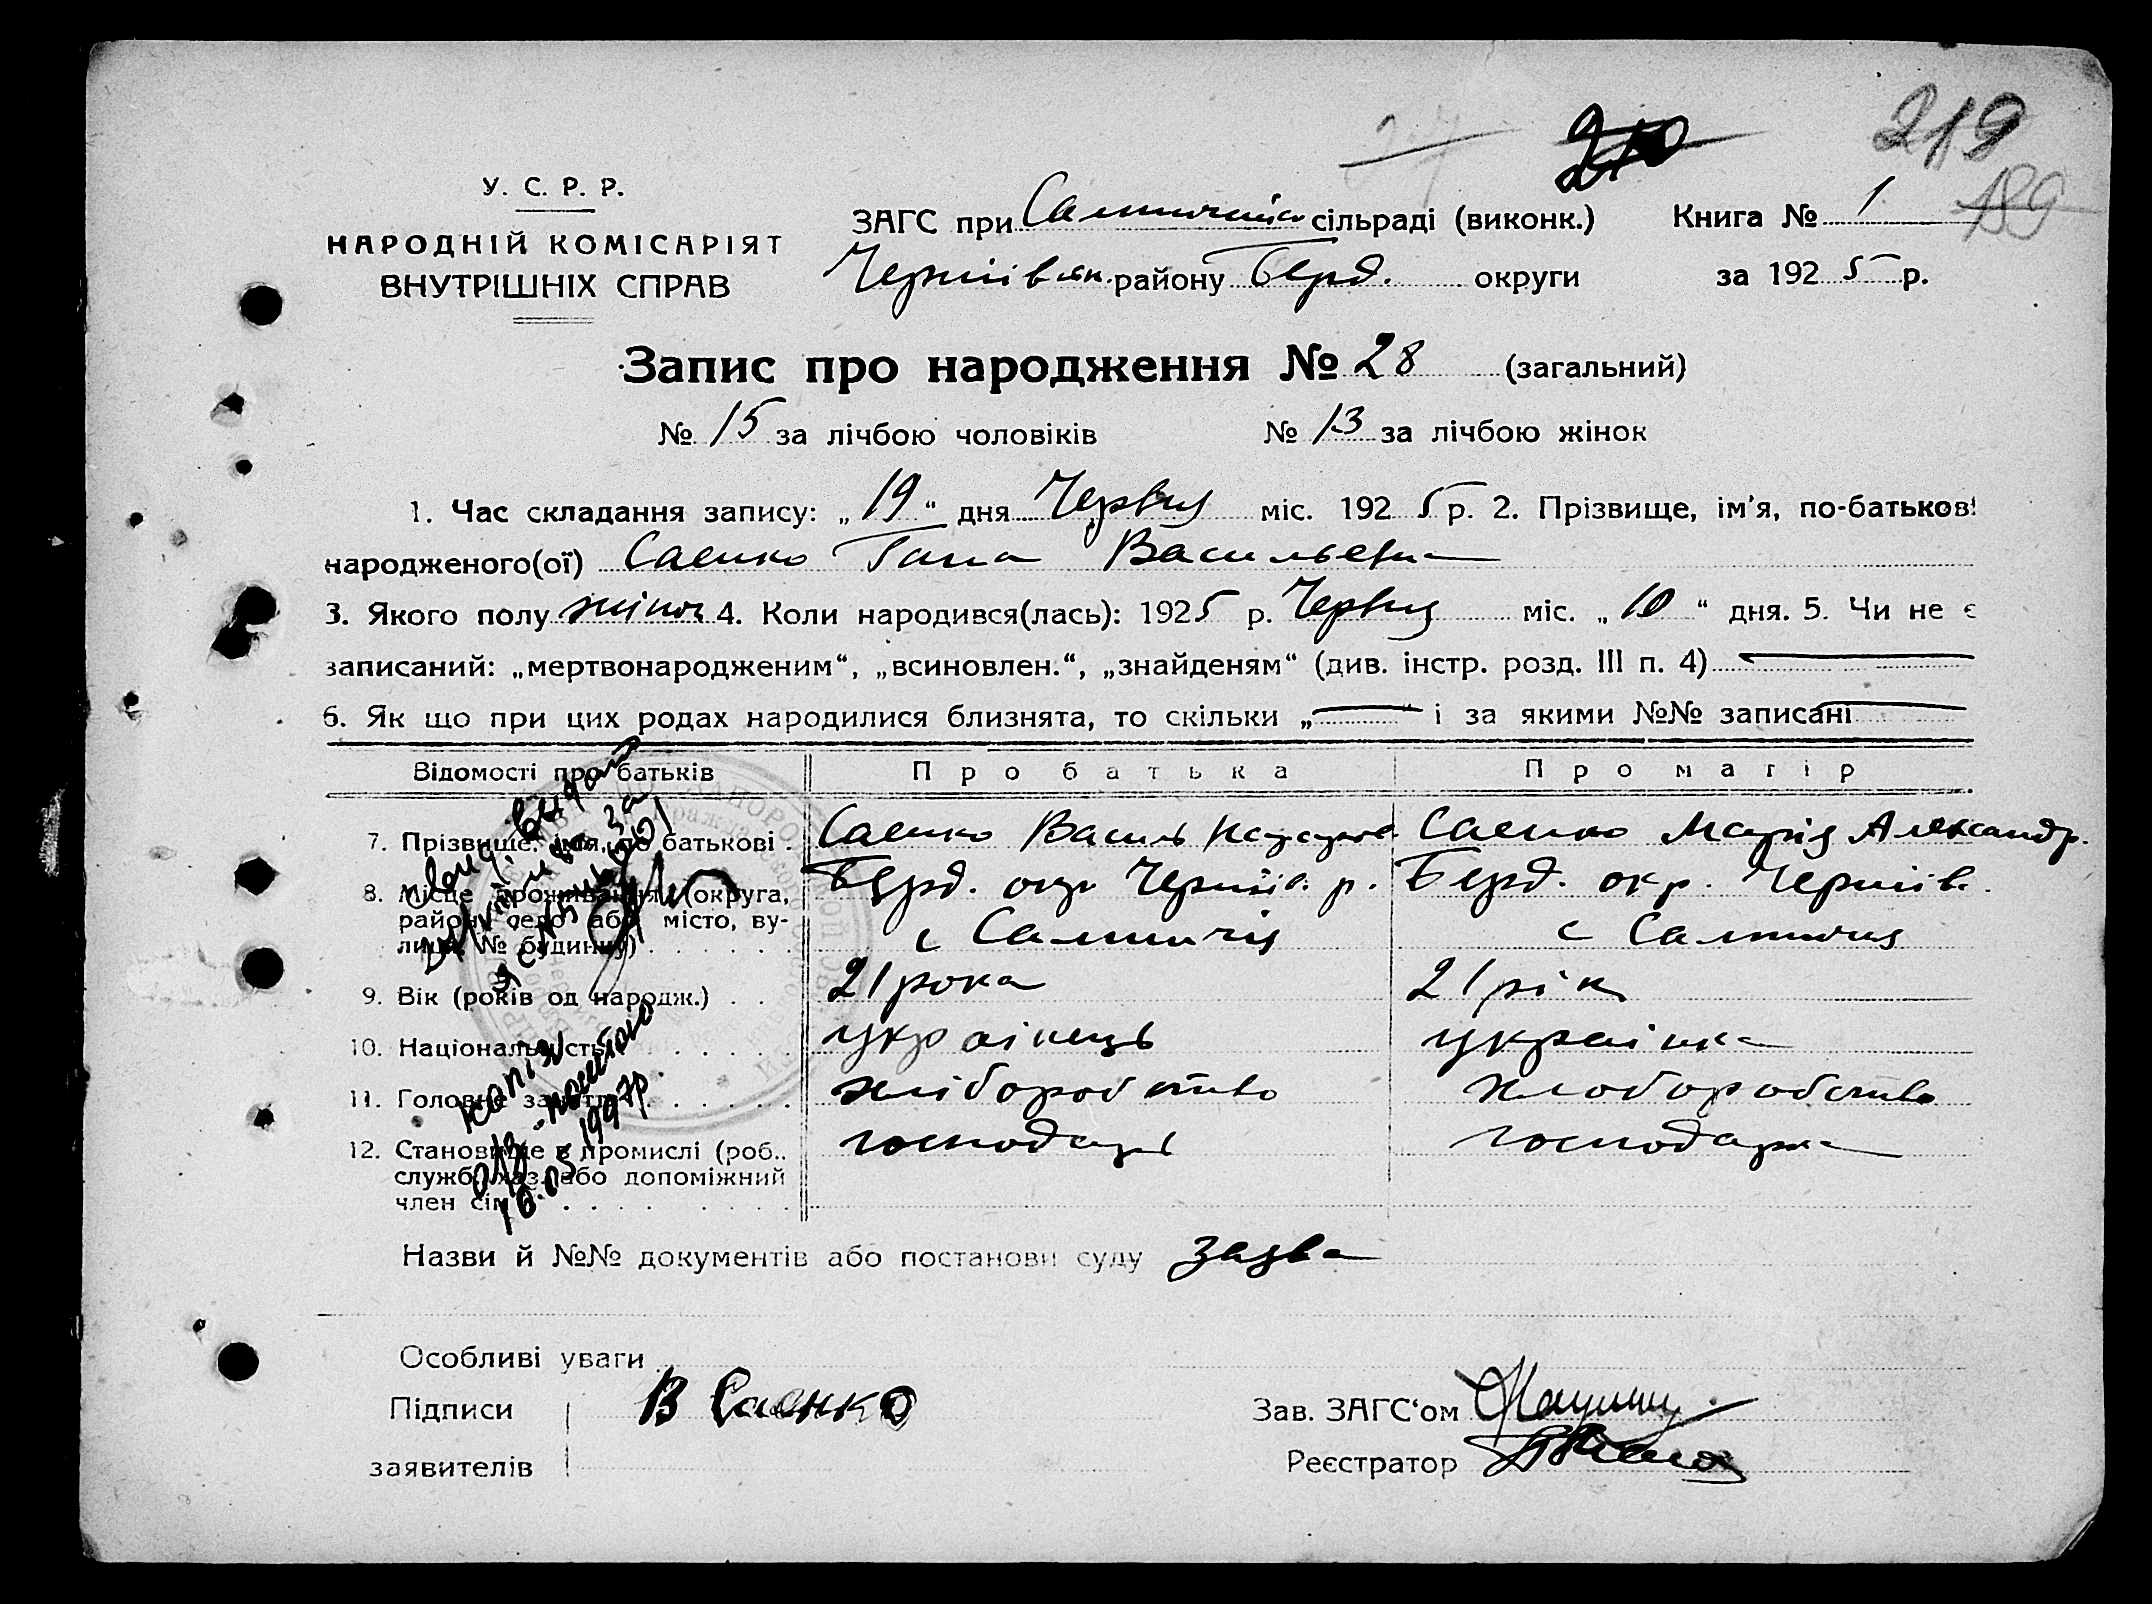 219
189
У. С. Р. Р.
НАРОДНІЙ КОМІСАРІЯТ
ВНУТРІШНІХ СПРАВ
ЗАГС при сільраді (виконк.) Книга № 1
району Берд. округи за 1925 р.
Запис про народження № 28 (загальний)
№ 15 за лічбою чоловіків № 13 за лічбою жінок
1. Час складання запису: „19“ дня Червня міс. 1925 р. 2. Прізвище, ім'я, по-батькові
народженого(ої) Саенко Гана Васильевна
3. Якого полу жіноч 4. Коли народився(лась): 1925 р. Червня міс. „10“ дня. 5. Чи не є
записаний: „мертвонародженим“, „всиновлен.“, „знайденям“ (див. інстр. розд. III п. 4)
6. Як що при цих родах народилися близнята, то скільки „ “ і за якими №№ записані
Відомості про батьків Про батька Про матір
7. Прізвище, імя, по батькові . Саенко Василь Саенко Марія Александр.
8. Місце проживання (округа, Берд. окр р. Берд. окр.
район, село або місто, ву- с с
лиця, № будинку)
9. Вік (років од народж.) . . 21 рока 21 рік
10. Національність . . . . . українець українка
11. Головне заняття . . . . . хліборобство хлоборобство
12. Становище в промислі (роб.. господарь господарка
службов. хаз. або допоміжний
член сім
копія
поштою
16.05.1997р.
Назви й №№ документів або постанови суду заява
Особливі уваги
Підписи В Саенко Зав. ЗАГС'ом
заявителів Реєстратор